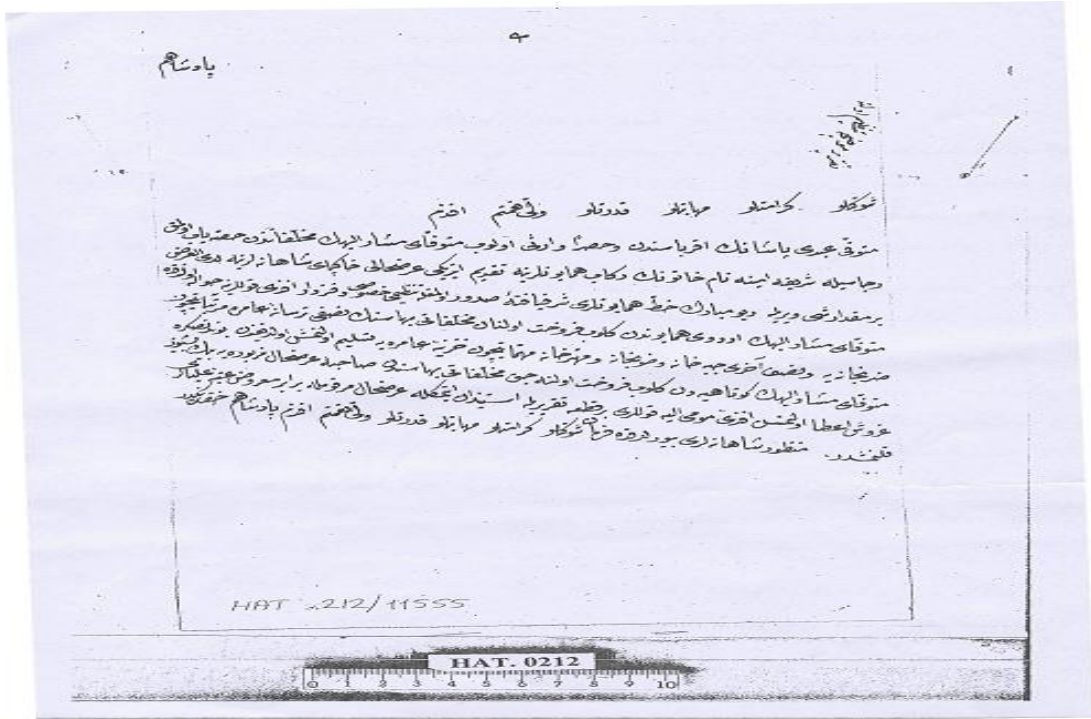 پادشاهم
شوكتلو كرامتلو مهابتلو قدرتلو ولی نعمتم افندم
متوفی عبدی پاشانك اقرباسندن وحصراً وارثی اولوب متوفای مشار الیهك مخلفاتندن حصه یاب اولمق
رجاسیله شریفه امینه نام خاتونك ركاب همایونلرینه تقدیم ایتدیكی عرضحالی خاكپای شاهانه لرینه لدی العرض
بر مقدار شی ویریله دیو مبارك خط همایونلری شرفیافتهٔ صدور اولمغو تنظیمی خصوصی دفتردار افندی قوللرینه حواله اولندقده
متوفای مشار الیهك اوردوی همایوندن كلوب فروخت اولنان مخلفاتی بهاسنك نصفی ترسانهٔ عامره مرتباتیچون
ضربخانه یه ونصف آخری جبه خانه وطوبخانه ومهترخانه مهماتیچون خزینهٔ عامره یه تسلیم اولنمش اولدیغندن بوندنصكره
متوفای مشار الیهك كوتاهیه دن كلوب فروخت اولنه جق مخلفاتی بهاسندن صاحبهٔ عرضحال مزبوره یه بیك
غروش اعطا اولنمسنی افندی مومی الیه قوللری بر قطعه تقریریله استیذان ایتمكله عرضحال مرقومله برابر معروض عتبهٔ علیالری
قلنمشدر منظور شاهانه لری بیورلدقده فرمان شوكتلو كرامتلو مهابتلو قدرتلو ولی نعمتم افندم پادشاهم حضرتلرینكدر
HAT .212/11555
HAT. 0212
0 1 2 3 4 5 6 7 8 9 10